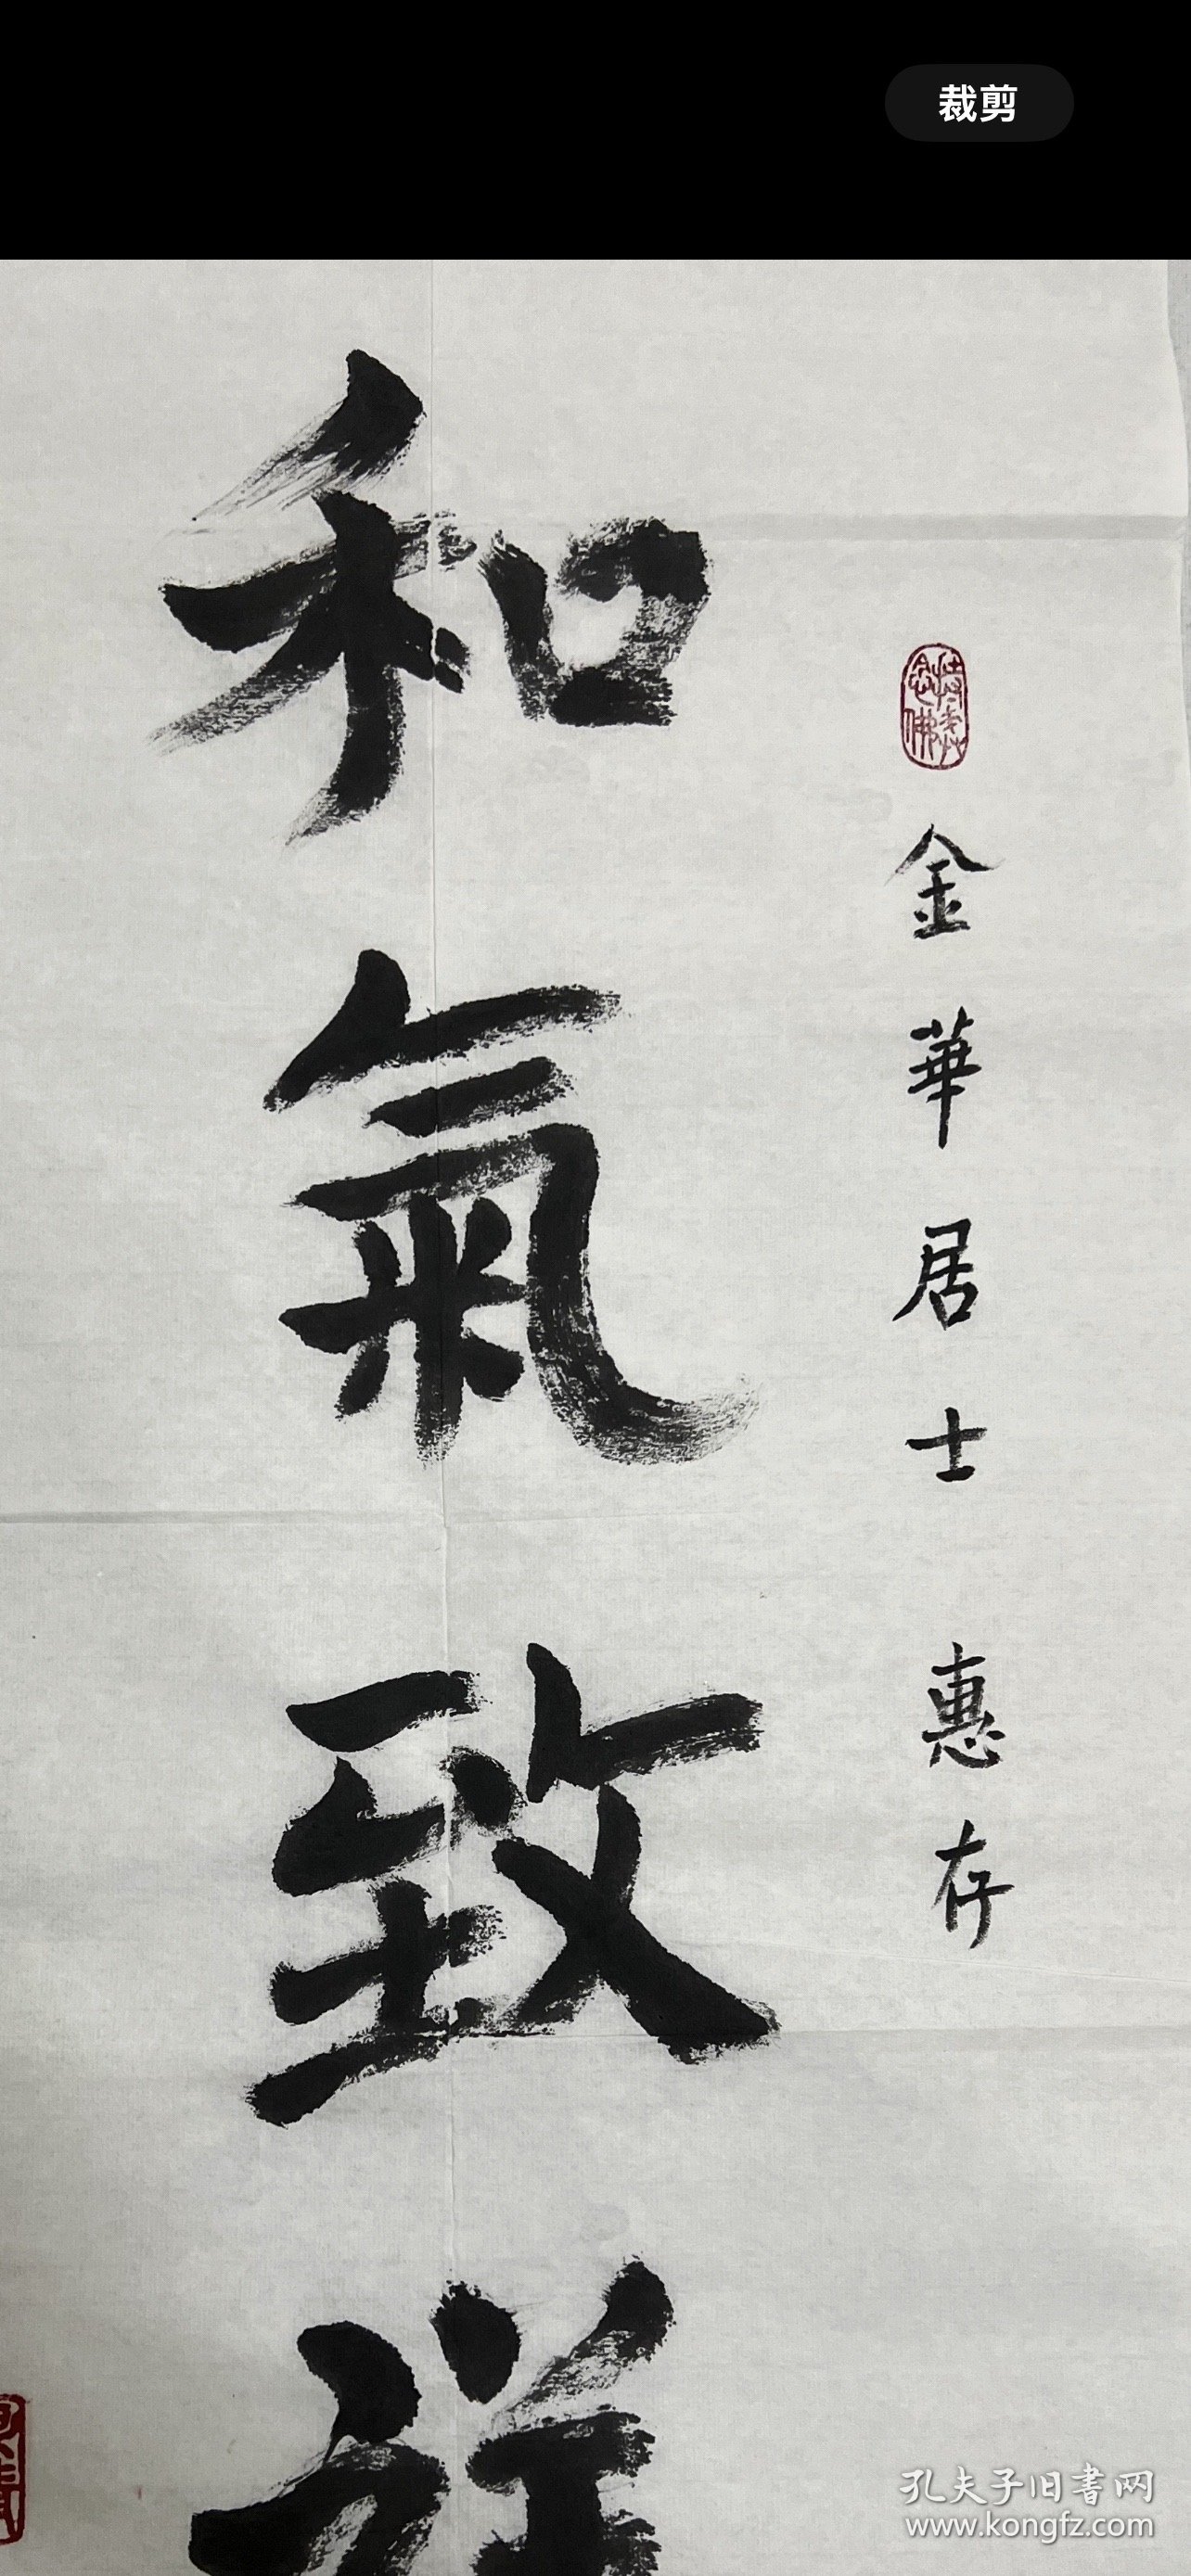 裁剪
持戒念佛
金華居士 惠存
和氣致祥
孔夫子旧書网
www.kongfz.com